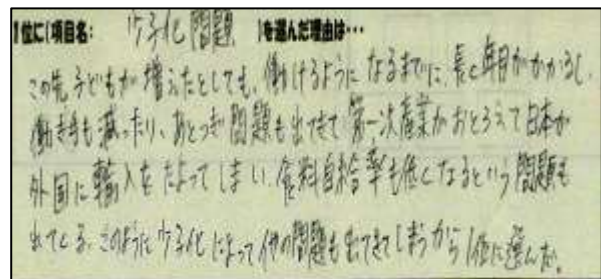 1位に(項目名: 少子化問題 )を選んだ理由は…
この先子どもが増えたとしても、働けるようになるまでに、長く年月がかかるし、
働き手も減ったり、あとつぎ問題も出てきて第一次産業がおとろえて日本が
外国に輸入をたよってしまい、食料自給率も低くなるという問題も
出てくる。このように少子化によって他の問題も出てきてしまうから1位に選んだ。